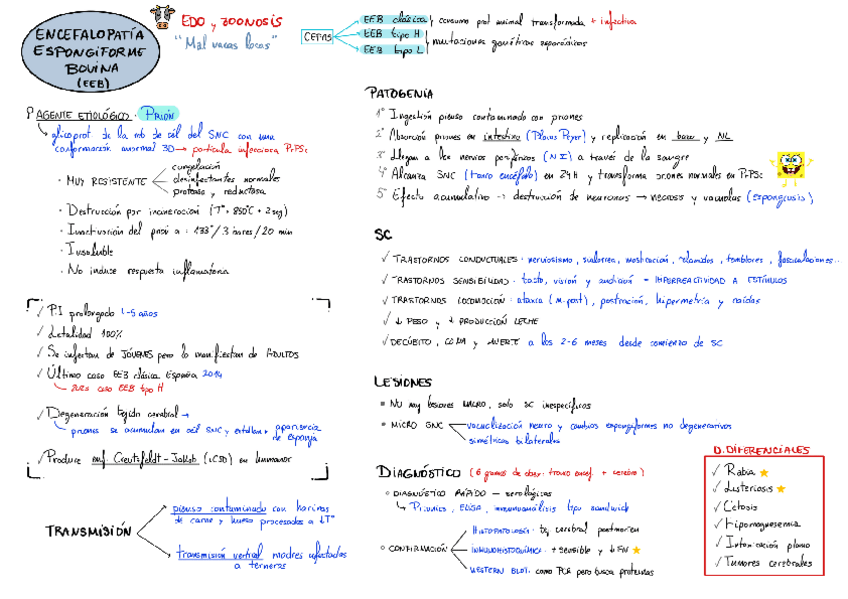 ENCEFALOPATÍA
ESPONGIFORME
BOVINA
(EEB)
EDO y ZOONOSIS
"Mal vacas locas"
CEPAS
EEB clásica
EEB tipo H
EEB tipo L
consumo prot animal transformada + infectiva
mutaciones genéticas esporádicas
AGENTE ETIOLÓGICO: PRIÓN
glicoprot de la mb de cél del SNC con una
conformación anormal 3D → partícula infecciosa PrPSc
· MUY RESISTENTE
congelación
desinfectantes normales
proteasa y
· Destrucción por incineración (Tª + 850ºC + 2 seg)
· Inactivación del prión a: 133º/3 bares/20 min
· Insoluble
· No induce respuesta inflamatoria
✓ PI prolongado 1-5 años
✓ Letalidad 100%
✓ Se infectan de JÓVENES pero lo manifiestan de ADULTOS
✓ Último caso EEB clásica España 2014
caso EEB tipo H
✓ Degeneración tejido cerebral →
priones se acumulan en cél SNC y estallan → apariencia
de esponja
✓ Produce enf. Creutzfeldt-Jakob en humanos
TRANSMISIÓN
pienso contaminado con harinas
de carne y hueso procesados a ↓Tª
transmisión vertical madres infectadas
a terneras
PATOGENIA
1º Ingestión pienso contaminado con priones
2º Absorción priones en intestino (Placas Peyer) y replicación en bazo y NL
3º Llegan a los nervios periféricos a través de la sangre
4º Alcanza SNC (tronco encéfalo) en 24H y transforma priones normales en PrPSc
5º Efecto acumulativo → destrucción de neuronas → necrosis y vacuolas (espongiosis)
SC
✓ TRASTORNOS CONDUCTUALES: nerviosismo, masticación, temblores, fasciculaciones...
✓ TRASTORNOS SENSIBILIDAD: tacto, visión y audición → HIPERREACTIVIDAD A ESTÍMULOS
✓ TRASTORNOS LOCOMOCIÓN: ataxia (M.post), postración, hipermetría y caídas
✓ ↓ PESO y ↓ PRODUCCIÓN LECHE
✓ DECÚBITO, COMA y MUERTE a los 2-6 meses desde comienzo de SC
LESIONES
NO hay lesiones MACRO, solo SC inespecíficos
MICRO SNC
vacuolización neuro y cambios espongiformes no degenerativos
simétricos bilaterales
DIAGNÓSTICO (6 gramos de obex: tronco encef. + cerebro)
DIAGNÓSTICO RÁPIDO → serológicos
Prionics, ELISA, inmunoanálisis tipo sandwich
CONFIRMACIÓN
HISTOPATOLOGÍA: tej cerebral postmortem
INMUNOHISTOQUÍMICA: + sensible y ↓FN
WESTERN BLOT: como PCR pero busca proteínas
D. DIFERENCIALES
✓ Rabia
✓ Listeriosis
✓ Cetosis
✓ Hipomagnesemia
✓ Intoxicación plomo
✓ Tumores cerebrales